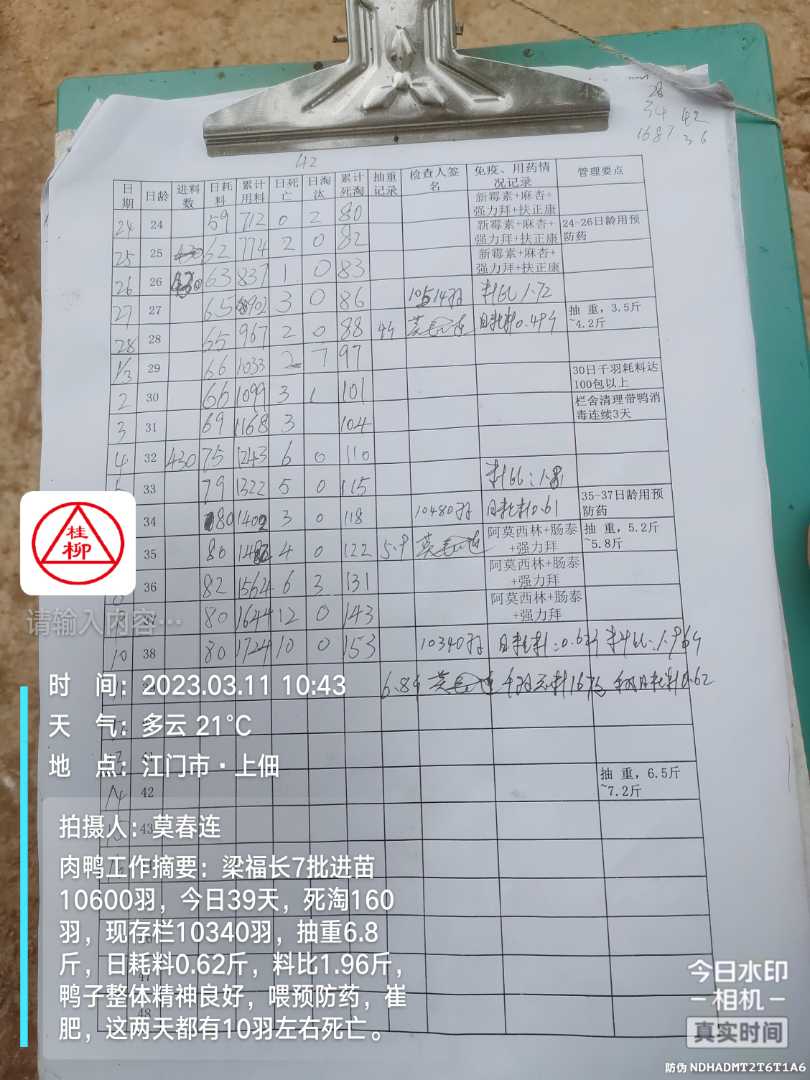 28
34 42
1687 36
42
日期 日龄 进料数 日耗料 累计用料 日死亡 日淘汰 累计死淘 抽重记录 检查人签名 免疫、用药情况记录 管理要点
24 24 59 712 0 2 80 新霉素+麻杏+强力拜+扶正康
25 25 430 62 774 2 0 82 新霉素+麻杏+强力拜+扶正康 24-26日龄用预防药
26 26 430 63 837 1 0 83 新霉素+麻杏+强力拜+扶正康
27 27 65 902 3 0 86 10514羽 料比1.72
28 28 65 967 2 0 88 4斤 莫春连 日耗料0.49斤 抽 重，3.5斤~4.2斤
1/3 29 66 1033 2 7 97
2 30 66 1099 3 1 101 30日千羽耗料达100包以上
3 31 69 1168 3 104 栏舍清理带鸭消毒连续3天
4 32 430 75 1243 6 0 110
5 33 79 1322 5 0 115 料比：1.81
34 80 1402 3 0 118 10480羽 日耗料0.61 35-37日龄用预防药
35 80 1482 4 0 122 5.9 莫春连 阿莫西林+肠泰+强力拜 抽 重，5.2斤~5.8斤
36 82 1564 6 3 131 阿莫西林+肠泰+强力拜
37 80 1644 12 0 143 阿莫西林+肠泰+强力拜
10 38 80 1724 10 0 153 10340羽 日耗料：0.62斤 料比：1.96斤
6.8斤 莫春连 0.62
42 抽 重，6.5斤~7.2斤
43
48
桂柳
请输入内容…
时 间：2023.03.11 10:43
天 气：多云 21℃
地 点：江门市·上佃
拍摄人：莫春连
肉鸭工作摘要：梁福长7批进苗
10600羽，今日39天，死淘160
羽，现存栏10340羽，抽重6.8
斤，日耗料0.62斤，料比1.96斤，
鸭子整体精神良好，喂预防药，崔
肥，这两天都有10羽左右死亡。
今日水印
相机
真实时间
防伪 NDHADMT2T6T1A6